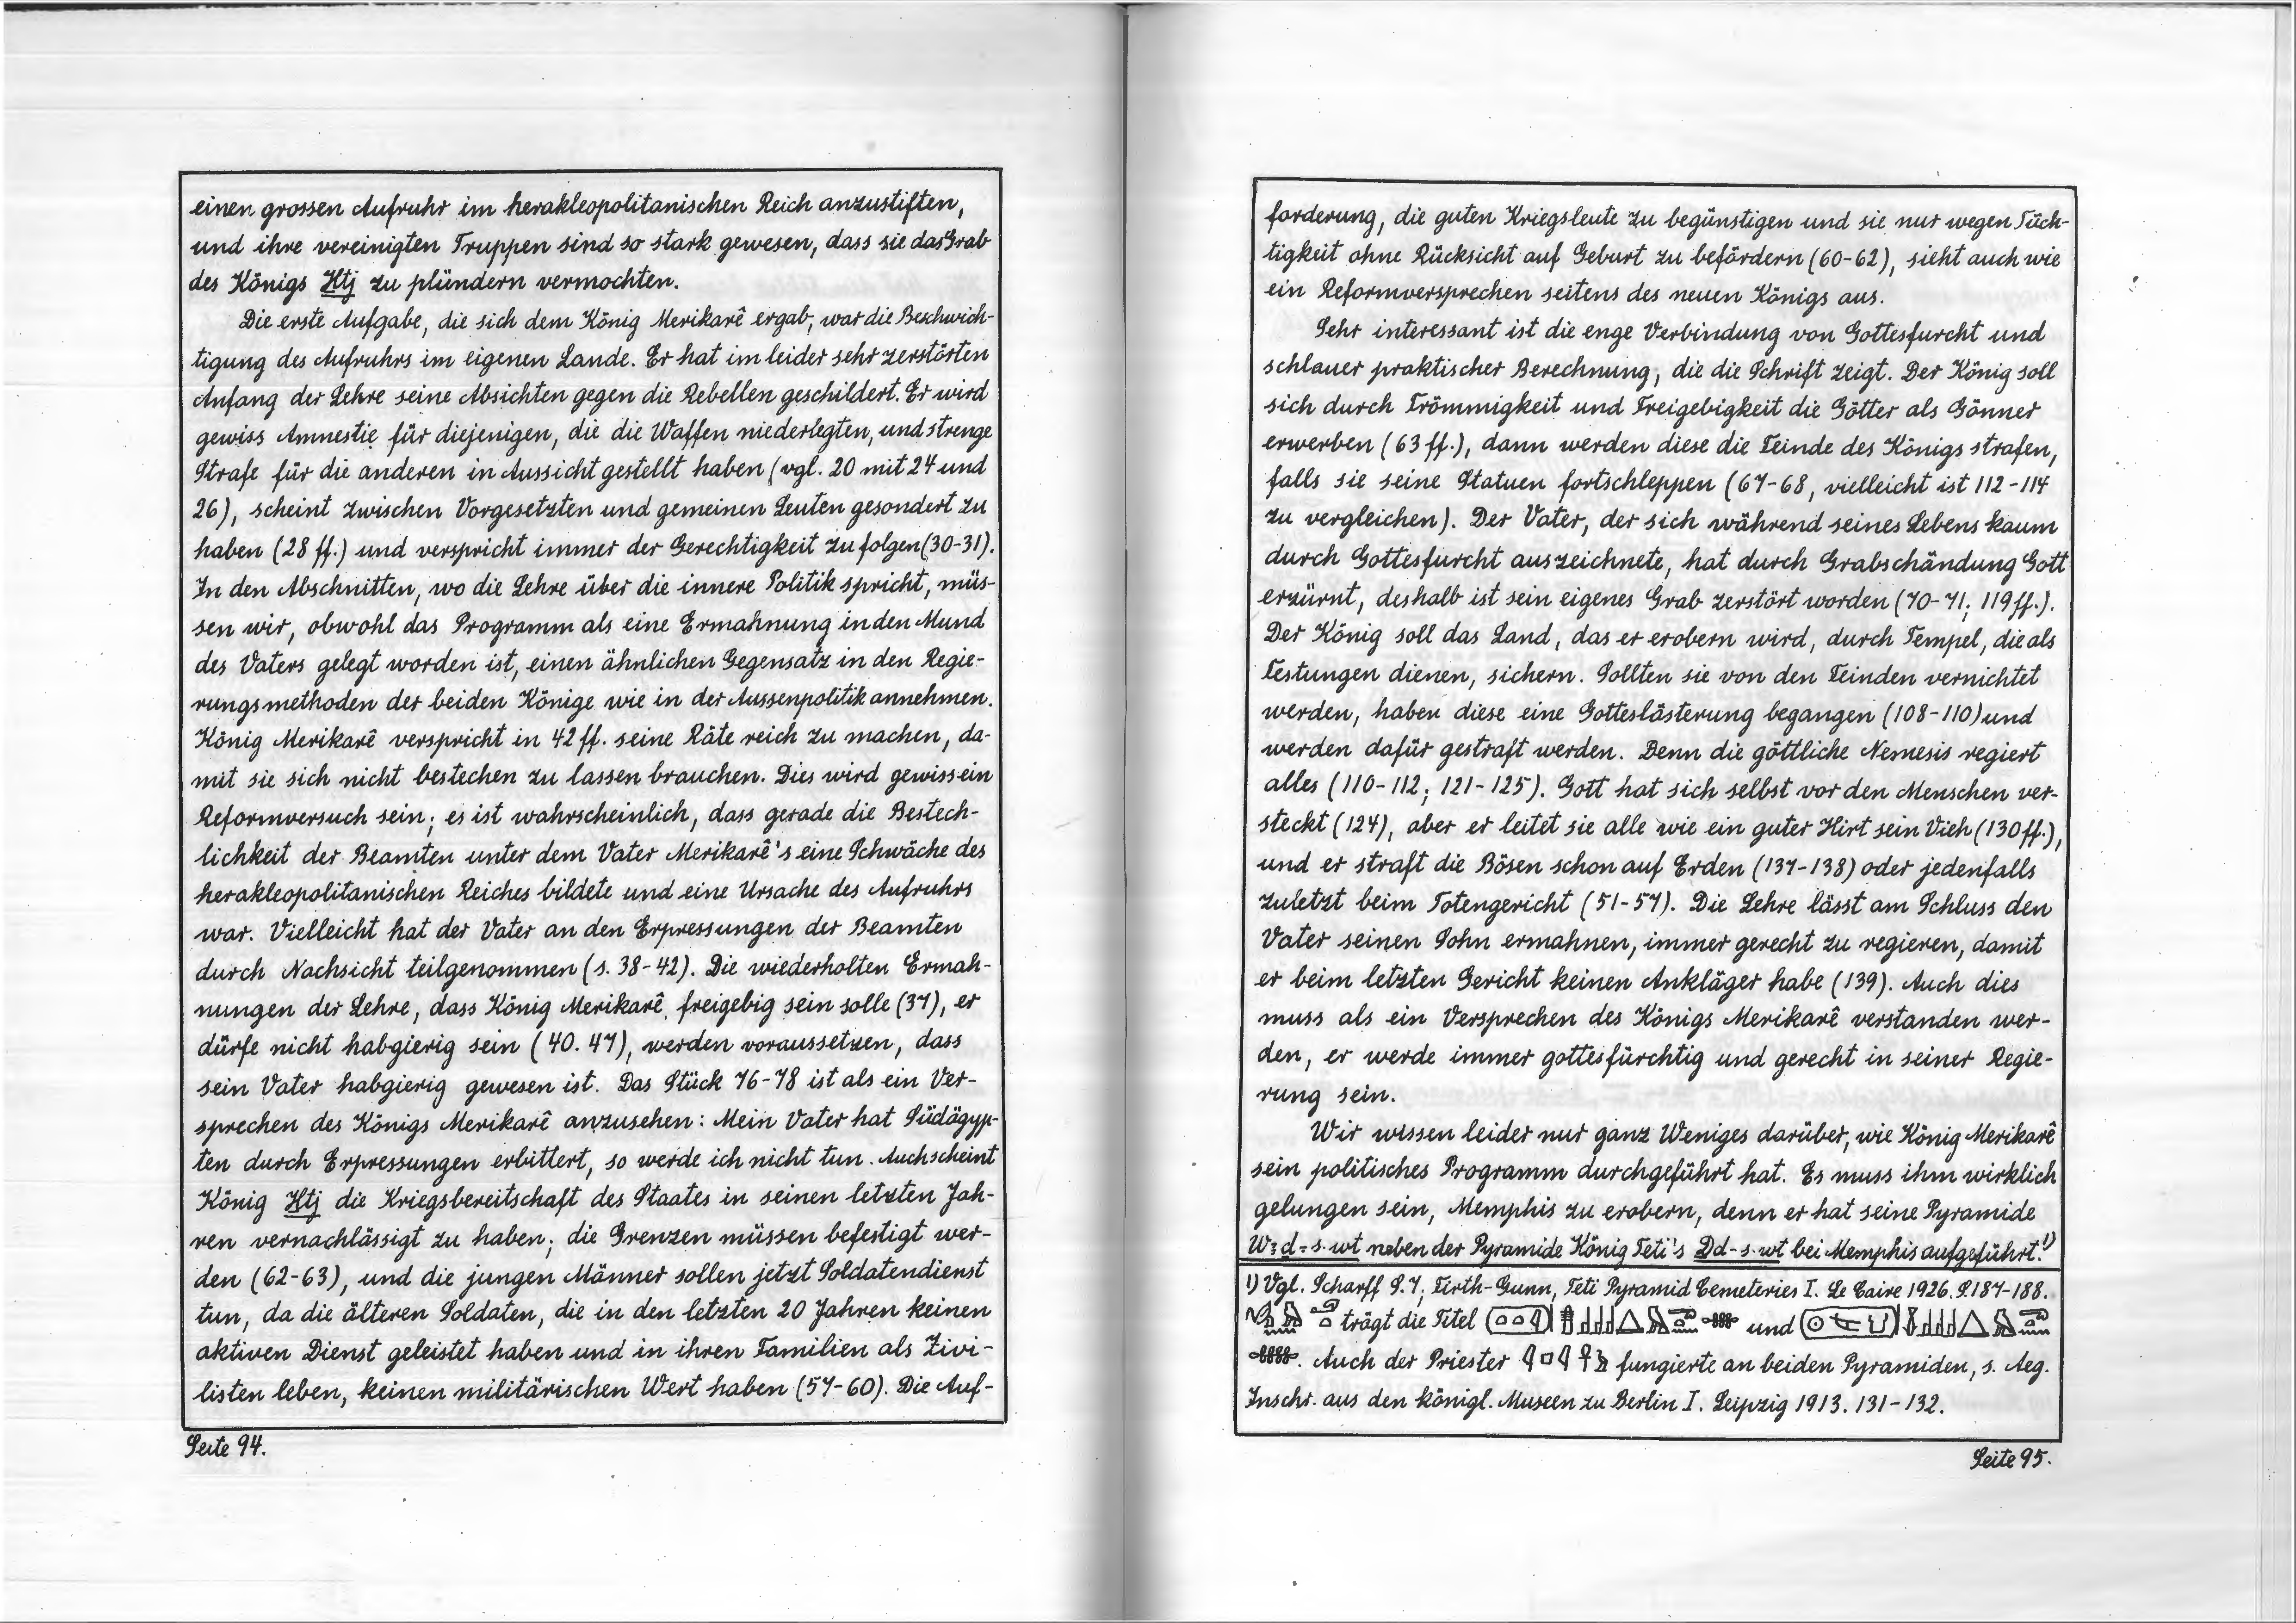 einen grossen Aufruhr im herakleopolitanischen Reich anzustiften,
und ihre vereinigten Truppen sind so stark gewesen, dass sie das Grab
des Königs Htj zu plündern vermochten.
Die erste Aufgabe, die sich dem König Merikarê ergab, war die Beschwich-
tigung des Aufruhrs im eigenen Lande. Er hat im leider sehr zerstörten
Anfang der Lehre seine Absichten gegen die Rebellen geschildert. Er wird
gewiss Amnestie für diejenigen, die die Waffen niederlegten, und strenge
Strafe für die anderen in Aussicht gestellt haben (vgl. 20 mit 24 und
26), scheint zwischen Vorgesetzten und gemeinen Leuten gesondert zu
haben (28 ff.) und verspricht immer der Gerechtigkeit zu folgen (30-31).
In den Abschnitten, wo die Lehre über die innere Politik spricht, müs-
sen wir, obwohl das Programm als eine Ermahnung in den Mund
des Vaters gelegt worden ist, einen ähnlichen Gegensatz in den Regie-
rungsmethoden der beiden Könige wie in der Aussenpolitik annehmen.
König Merikarê verspricht in 42 ff. seine Räte reich zu machen, da-
mit sie sich nicht bestechen zu lassen brauchen. Dies wird gewiss ein
Reformversuch sein; es ist wahrscheinlich, dass gerade die Bestech-
lichkeit der Beamten unter dem Vater Merikarê's eine Schwäche des
herakleopolitanischen Reiches bildete und eine Ursache des Aufruhrs
war. Vielleicht hat der Vater an den Erpressungen der Beamten
durch Nachsicht teilgenommen (s. 38-42). Die wiederholten Ermah-
nungen der Lehre, dass König Merikarê freigebig sein solle (37), er
dürfe nicht habgierig sein (40. 47), werden voraussetzen, dass
sein Vater habgierig gewesen ist. Das Stück 76-78 ist als ein Ver-
sprechen des Königs Merikarê anzusehen: Mein Vater hat Südägyp-
ten durch Erpressungen erbittert, so werde ich nicht tun. Auch scheint
König Htj die Kriegsbereitschaft des Staates in seinen letzten Jah-
ren vernachlässigt zu haben; die Grenzen müssen befestigt wer-
den (62-63), und die jungen Männer sollen jetzt Soldatendienst
tun, da die älteren Soldaten, die in den letzten 20 Jahren keinen
aktiven Dienst geleistet haben und in ihren Familien als Zivi-
listen leben, keinen militärischen Wert haben (57-60). Die Auf-
Seite 94.
forderung, die guten Kriegsleute zu begünstigen und sie nur wegen Tüch-
tigkeit ohne Rücksicht auf Geburt zu befördern (60-62), sieht auch wie
ein Reformversprechen seitens des neuen Königs aus.
Sehr interessant ist die enge Verbindung von Gottesfurcht und
schlauer praktischer Berechnung, die die Schrift zeigt. Der König soll
sich durch Frömmigkeit und Freigebigkeit die Götter als Gönner
erwerben (63 ff.), dann werden diese die Feinde des Königs strafen,
falls sie seine Statuen fortschleppen (67-68, vielleicht ist 112-114
zu vergleichen). Der Vater, der sich während seines Lebens kaum
durch Gottesfurcht auszeichnete, hat durch Grabschändung Gott
erzürnt, deshalb ist sein eigenes Grab zerstört worden (70-71; 119 ff.).
Der König soll das Land, das er erobern wird, durch Tempel, die als
Festungen dienen, sichern. Sollten sie von den Feinden vernichtet
werden, haben diese eine Gotteslästerung begangen (108-110) und
werden dafür gestraft werden. Denn die göttliche Nemesis regiert
alles (110-112; 121-125). Gott hat sich selbst vor den Menschen ver-
steckt (124), aber er leitet sie alle wie ein guter Hirt sein Vieh (130 ff.),
und er straft die Bösen schon auf Erden (137-138) oder jedenfalls
zuletzt beim Totengericht (51-57). Die Lehre lässt am Schluss den
Vater seinen Sohn ermahnen, immer gerecht zu regieren, damit
er beim letzten Gericht keinen Ankläger habe (139). Auch dies
muss als ein Versprechen des Königs Merikarê verstanden wer-
den, er werde immer gottesfürchtig und gerecht in seiner Regie-
rung sein.
Wir wissen leider nur ganz Weniges darüber, wie König Merikarê
sein politisches Programm durchgeführt hat. Es muss ihm wirklich
gelungen sein, Memphis zu erobern, denn er hat seine Pyramide
Wꜣḏ-s·wt neben der Pyramide König Teti's Ḏd-s·wt bei Memphis aufgeführt.¹)
1) Vgl. Scharff S. 7; Firth-Gunn, Teti Pyramid Cemeteries I. Le Caire 1926. S. 187-188.
trägt die Titel und
. Auch der Priester fungierte an beiden Pyramiden, s. Aeg.
Inschr. aus den königl. Museen zu Berlin I. Leipzig 1913. 131-132.
Seite 95.